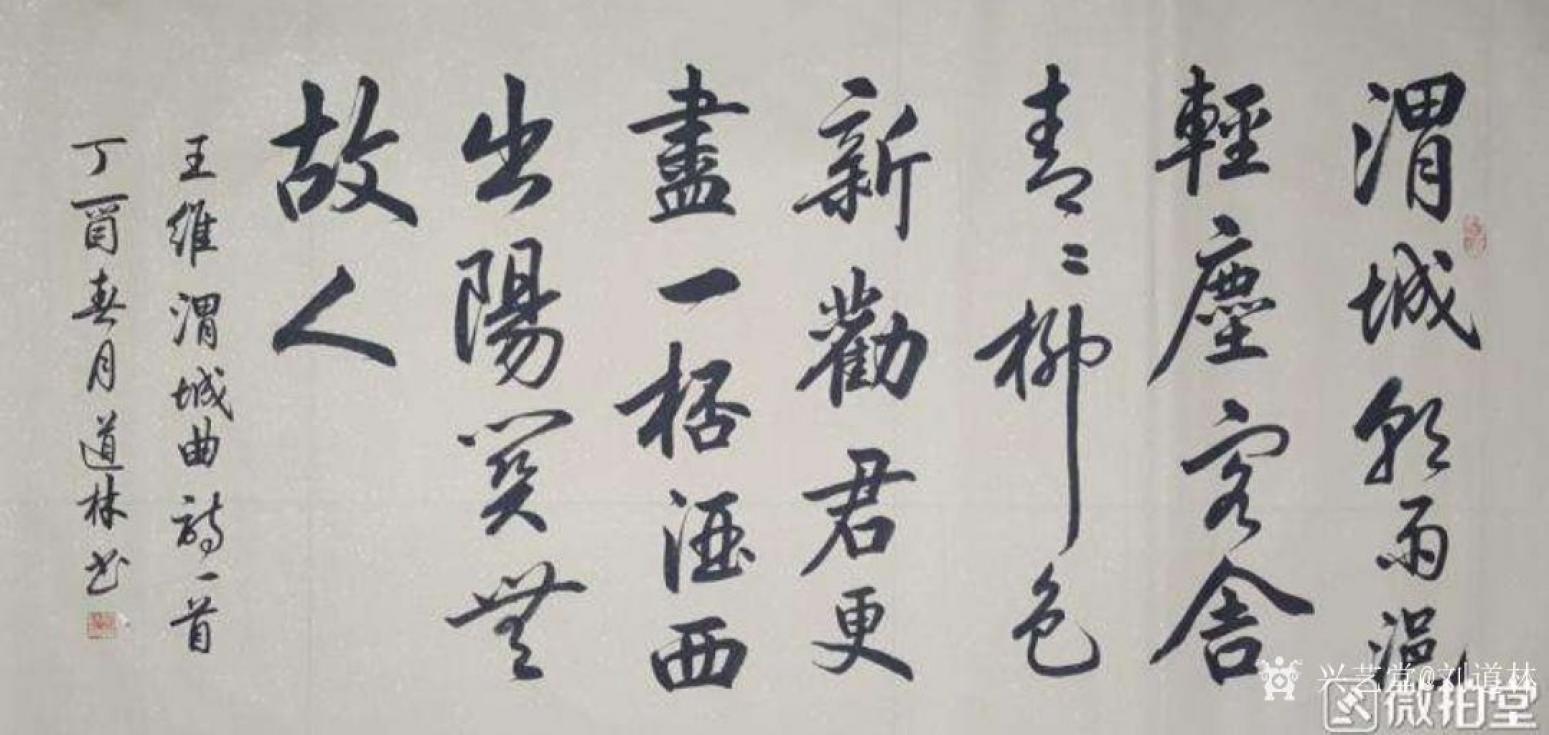 渭城朝雨浥
輕塵客舍
青〻柳色
新勸君更
盡一杯酒西
出陽关無
故人
王維渭城曲詩一首
丁酉春月道林书
兴艺堂@刘道林
微拍堂